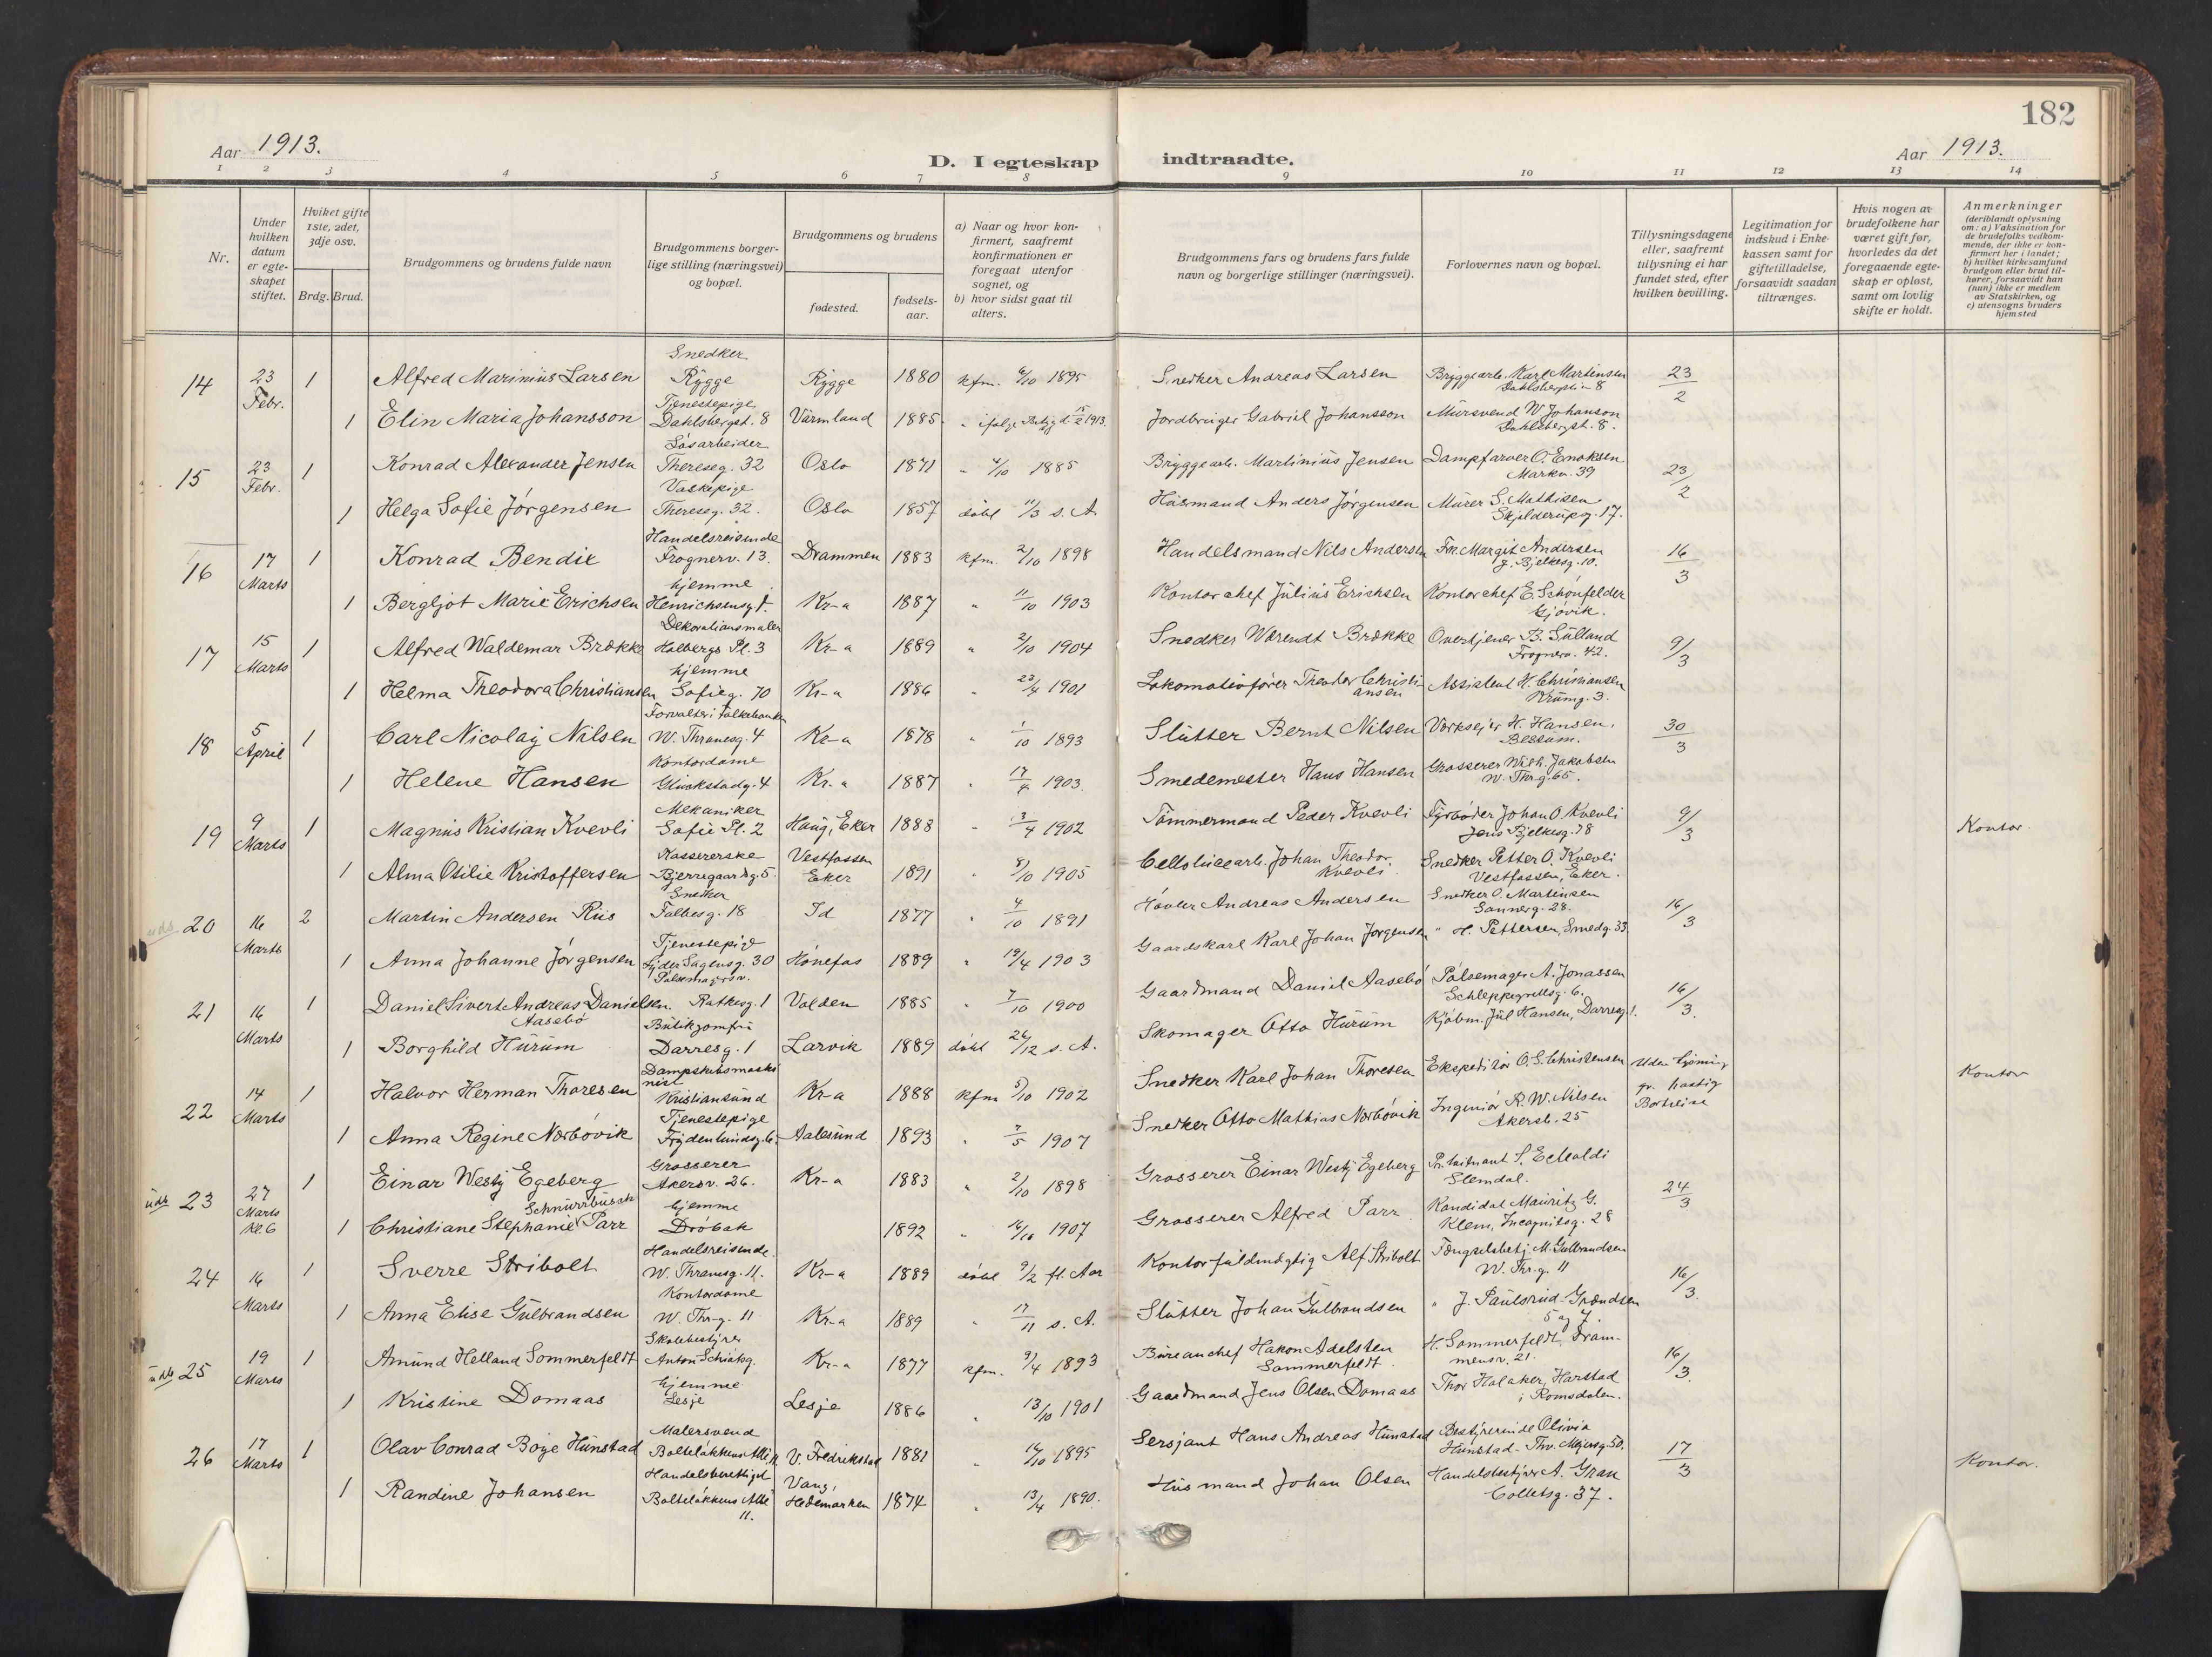 182
Aar 1913.
D. I egteskap indtraadte.
Aar 1913.
1 2 3 4 5 6 7 8 9 10 11 12 13 14
Nr.
Under hvilken datum er egte-skapet stiftet.
Hvilket gifte 1ste, 2det, 3dje osv.
Brdg. Brud.
Brudgommens og brudens fulde navn
Brudgommens borger-lige stilling (næringsvei) og bopæl.
Brudgommens og brudens
fødested.
fødsels-aar.
a) Naar og hvor kon-firmert, saafremt konfirmationen er foregaat utenfor sognet, og
b) hvor sidst gaat til alters.
Brudgommens fars og brudens fars fulde navn og borgerlige stillinger (næringsvei).
Forlovernes navn og bopæl.
Tillysningsdagene eller, saafremt tillysning ei har fundet sted, efter hvilken bevilling.
Legitimation for indskud i Enke-kassen samt for giftetilladelse, forsaavidt saadan tiltrænges.
Hvis nogen av brudefolkene har været gift før, hvorledes da det foregaaende egte-skap er opløst, samt om lovlig skifte er holdt.
Anmerkninger (deriblandt oplysning om: a) Vaksination for de brudefolks vedkom-mende, der ikke er kon-firmert her i landet; b) hvilket kirkesamfund brudgom eller brud til-hører, forsaavidt han (hun) ikke er medlem av Statskirken, og c) utensogns bruders hjemsted
14 23 Febr. 1 Alfred Marinius Larsen Snedker Rygge Rygge 1880 kfm. 6/10 1895 Snedker Andreas Larsen Bryggearb. Karl Martinsen Dahlsbergstin 8 23/2
1 Elin Maria Johansson Tjenestepige Dahlsbergst. 8 Värmland 1885 " ifølge 1913. Jordbruger Gabriel Johansson Mursvend W. Johanson Dahlsbergst. 8.
15 23 Febr. 1 Konrad Alexander Jensen Løsarbeider Thereseg. 32 Oslo 1871 " 4/10 1885 Bryggearb. Martinius Jensen Dampfarver O. Enoksen Markv. 39 23/2
1 Helga Sofie Jørgensen Vaskepige Thereseg. 32. Oslo 1857 døbt 11/3 s. A. Husmand Anders Jørgensen Murer S. Mathisen Skjelderupsg. 17.
16 17 Marts 1 Konrad Bendix Handelsreisende Frognerv. 13. Drammen 1883 kfm. 2/10 1898 Handelsmand Nils Andersen Frk. Margit Andersen J. Bjelkesg. 10. 16/3
1 Bergljot Marie Erichsen hjemme Henrichsensg. 1. Kr-a 1887 " 11/10 1903 Kontorchef Julius Erichsen Kontorchef E. Schønfelder Gjøvik.
17 15 Marts 1 Alfred Waldemar Brække Dekorationsmaler Holbergs Pl. 3 Kr-a 1889 " 2/10 1904 Snedker Wærendt Brække Overtjener B. Sulland Frognerv. 42. 9/3
1 Helma Theodora Christiansen hjemme Sofieg. 70 Kr-a 1886 " 23/4 1901 Lokomotivfører Theodor Christi-ansen Assistent H. Christiansen Krumg. 3.
18 5 April 1 Carl Nicolay Nilsen Forvalter i Folkebanken W. Thranesg. 4 Kr-a 1878 " 1/10 1893 Slutter Bernt Nilsen Værkseier H. Hansen, Bestum. 30/3
1 Helene Hansen Kontordame Gluckstadg. 4 Kr.a 1887 " 1903. Smedemester Hans Hansen Grosserer Wilh. Jakobsen W. Thr.g. 65.
19 9 Marts 1 Magnus Kristian Kvevli Mekaniker Sofie Pl. 2 Haug, Eker 1888 " 13/4 1902 Tømmermand Peder Kvevli Fyrbøder Johan O. Kvevli Jens Bjelkesg. 78 9/3 Kontor.
1 Alma Otilie Kristoffersen Kassererske Bjerregaardsg. 5. Vestfossen Eker 1891 " 8/10 1905 Cellulosearb. Johan Theodor. Kvevli Snedker Petter O. Kvevli Vestfossen, Eker.
uds 20 16 Marts 2 Martin Andersen Riis Snedker Falbesg. 18 Id 1877 " 4/10 1891 Høvler Andreas Andersen Snedker O. Martinsen Sannerg. 28. 16/3
1 Anna Johanne Jørgensen Tjenestepige Lyder Sagensg. 30 Hønefos 1889 " 19/4 1903 Gaardskarl Karl Johan Jørgensen " H. Pettersen, Smedg. 33
21 16 Marts 1 Daniel Sivert Andreas Danielsen Aasebø Pølsemagersv. Ratkesg. 1 Volden 1885 " 7/10 1900 Gaardmand Daniel Aasebø Pølsemager A. Jonassen Schleppegrellsg. 6. 16/3.
1 Borghild Hurum Butikjomfru Darresg. 1 Larvik 1889 døbt 26/12 s. A. Skomager Otto Hurum Kjøbm. Jul Hansen, Darresg. 1.
22 14 Marts 1 Halvor Herman Thoresen Dampskibsmaski nist Kristiansund Kr-a 1888 kfm 5/10 1902 Snedker Karl Johan Thoresen Ekspeditør O. S. Christensen Uden lysning gr. hastig Bortreise Kontor
1 Anna Regine Nørbøvik Tjenestepige Frydenlundsg. 6. Aalesund 1893 " 7/5 1907 Snedker Otto Mathias Nørbøvik Ingeniør R. W. Nilsen Akersb. 25
uds 23 27 Marts Kl. 6 1 Einar Westy Egeberg Grosserer Akersv. 26. Kr-a 1883 " 2/10 1898 Grosserer Einar Westy Egeberg Pr. leitnant S. Eckoldi Slemdal. 24/3
1 Christiane Stephanie Schnurrbusch Parr hjemme Drøbak 1892 " 1907 Grosserer Alfred Parr Kandidat Mauritz G. Klem, Incognitog. 28
24 16 Marts 1 Sverre Stribolt Handelsreisende W. Thranesg. 11. Kr-a 1889 døbt 9/2 fl. Aar Kontorfuldmægtig Alf Stribolt Fængselsbetj. M. Gulbrandsen W. Thr.g. 11 16/3.
1 Anna Elise Gulbrandsen Kontordame W. Thr-g. 11 Kr.a 1889 " 17/11 s. A. Slutter Johan Gulbrandsen " J. Paulsrud Grændsen 5 og 7.
uds 25 19 Marts 1 Amund Helland Sommerfeldt Skolebestyrer Anton Schiøtsg. Kr-a 1877 kfm. 9/4 1893 Bureauchef Hakon Adelsten Sommerfeldt H. Sommerfeldt, Dram-mensv. 21. 16/3.
1 Kristine Domaas hjemme Lesje Lesje 1886 " 13/10 1901 Gaardmand Jens Olsen Domaas Thor Holaker, Harstad i Romsdalen.
26 17 Marts 1 Olav Conrad Boye Hunstad Malersvend Bolteløkkens Allé 11 V. Fredrikstad 1881 " 1895 Sersjant Hans Andreas Hunstad Bestyrerinde Olivia Hunstad Thv. Meyersg. 50. 17/3 Kontor.
1 Randine Johansen Handelsberettiget Bolteløkkens Allé 11. Vang, Hedemarken 1874 " 13/4 1890. Husmand Johan Olsen Handelsbestyrer A. Gran Colletsg. 37.